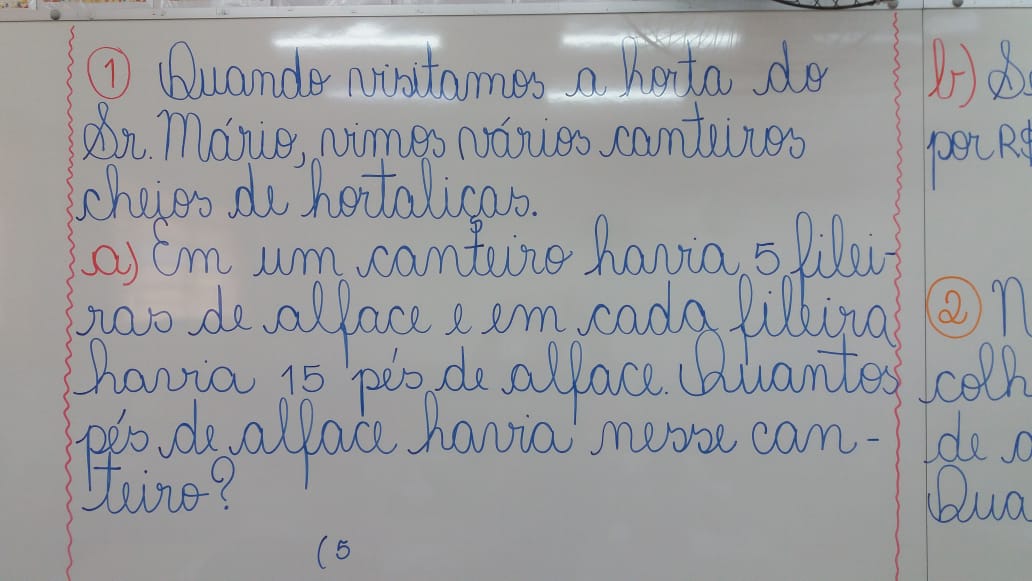 1 Quando visitamos a horta do
Sr. Mário, vimos vários canteiros
cheios de hortaliças.
a) Em um canteiro havia 5 filei-
ras de alface e em cada fileira
havia 15 pés de alface. Quantos
pés de alface havia nesse can-
teiro?
(5
b)
por R$
2
colh
de a
Qua